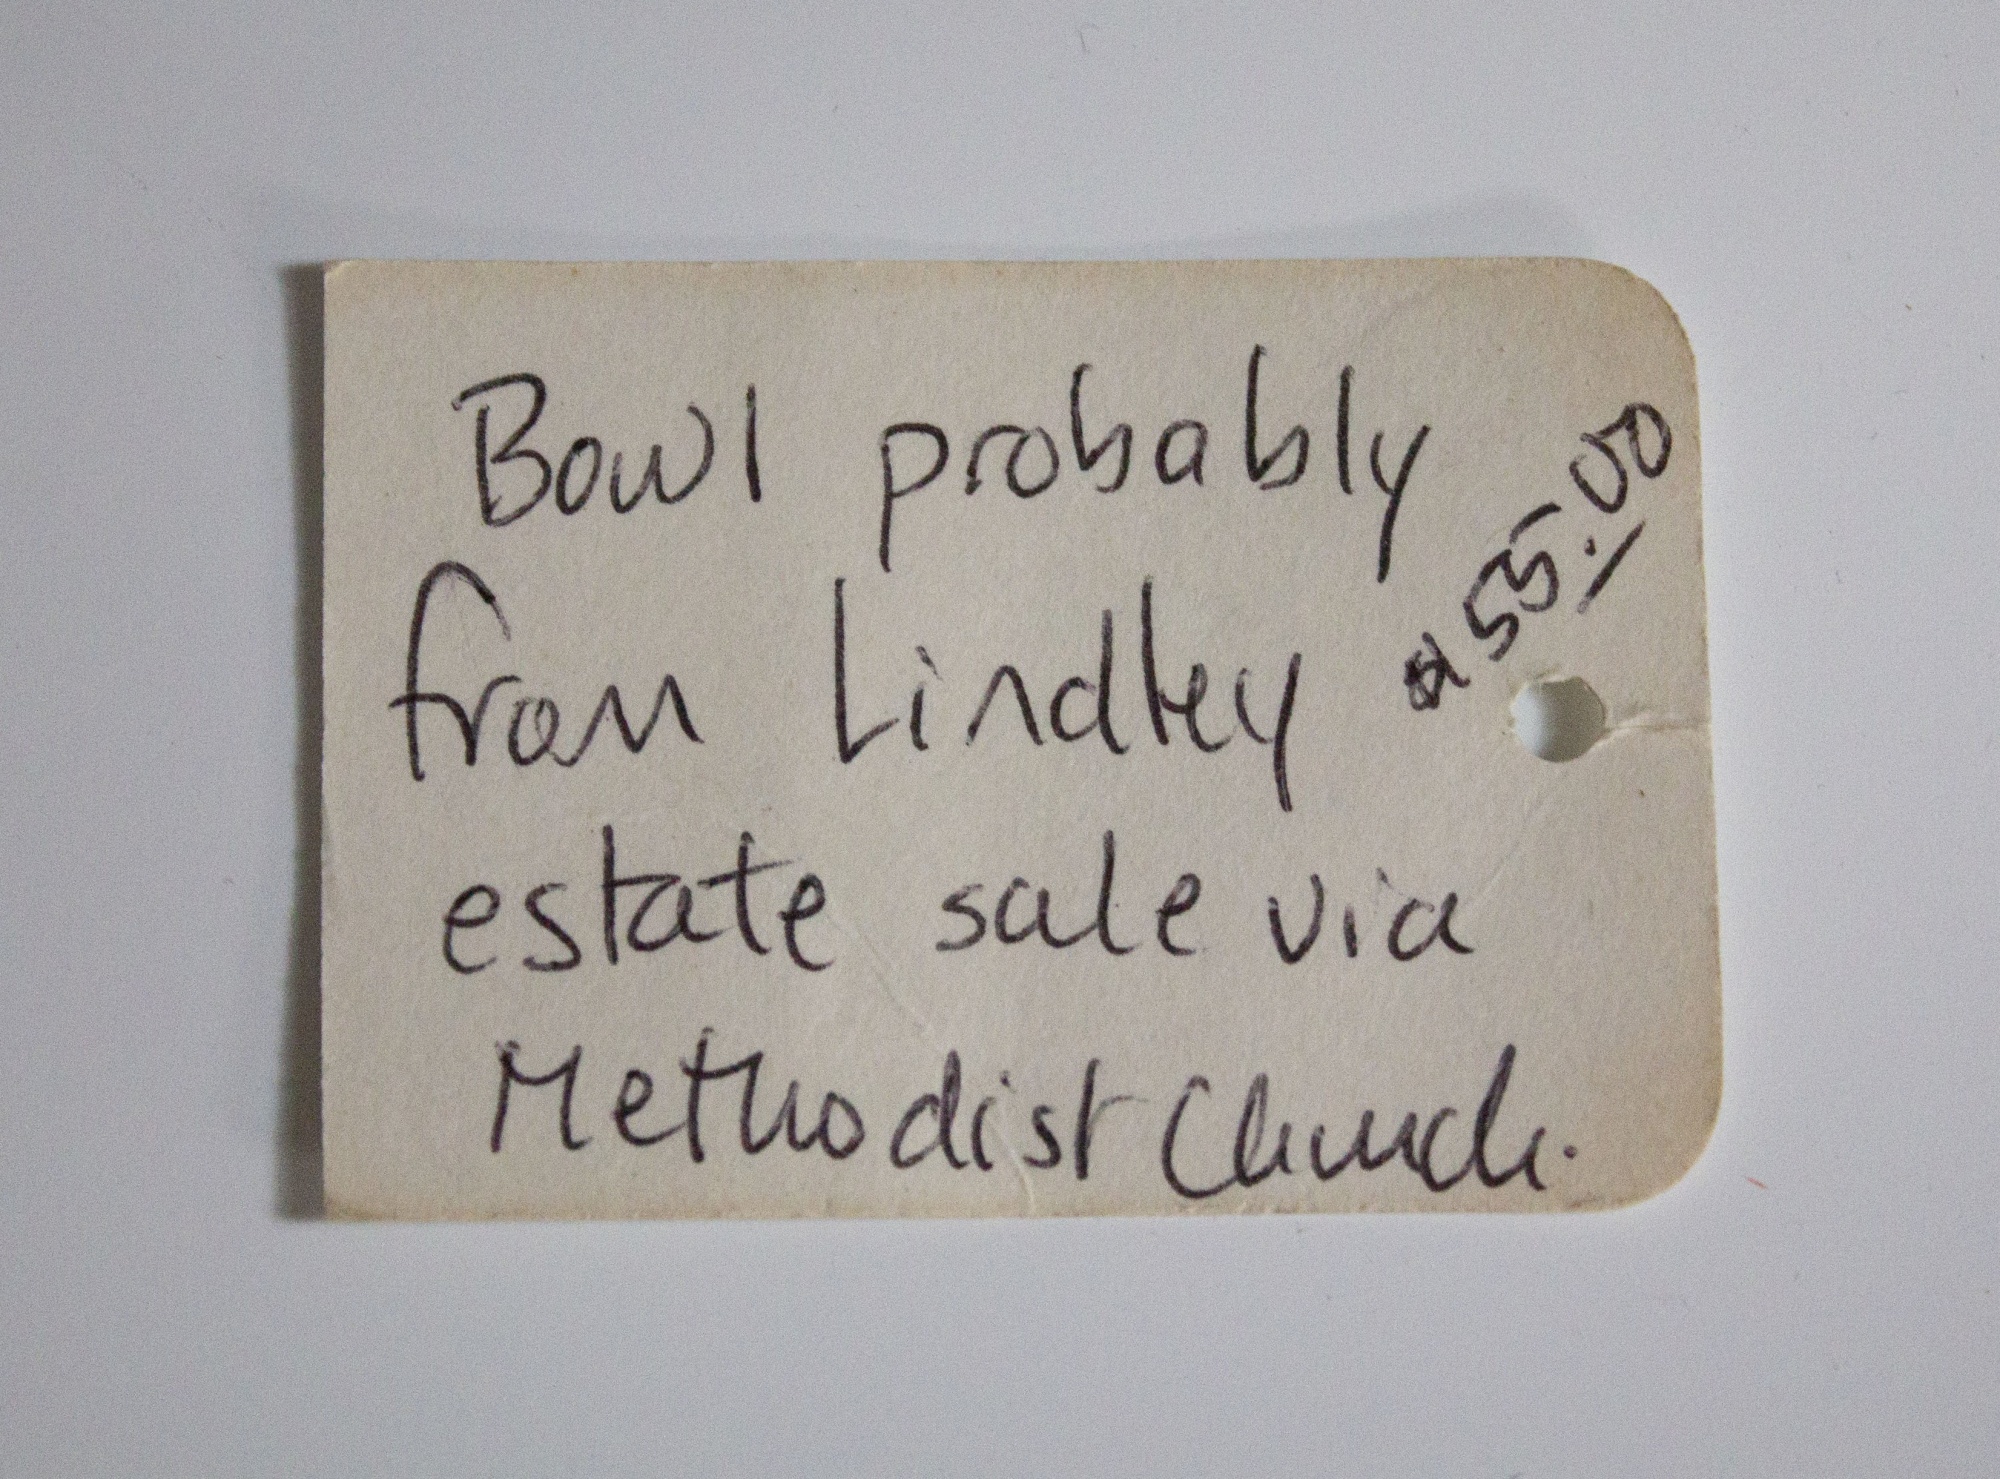 Bowl probably
from Lindley
$55.00
estate sale via
Methodist Church.